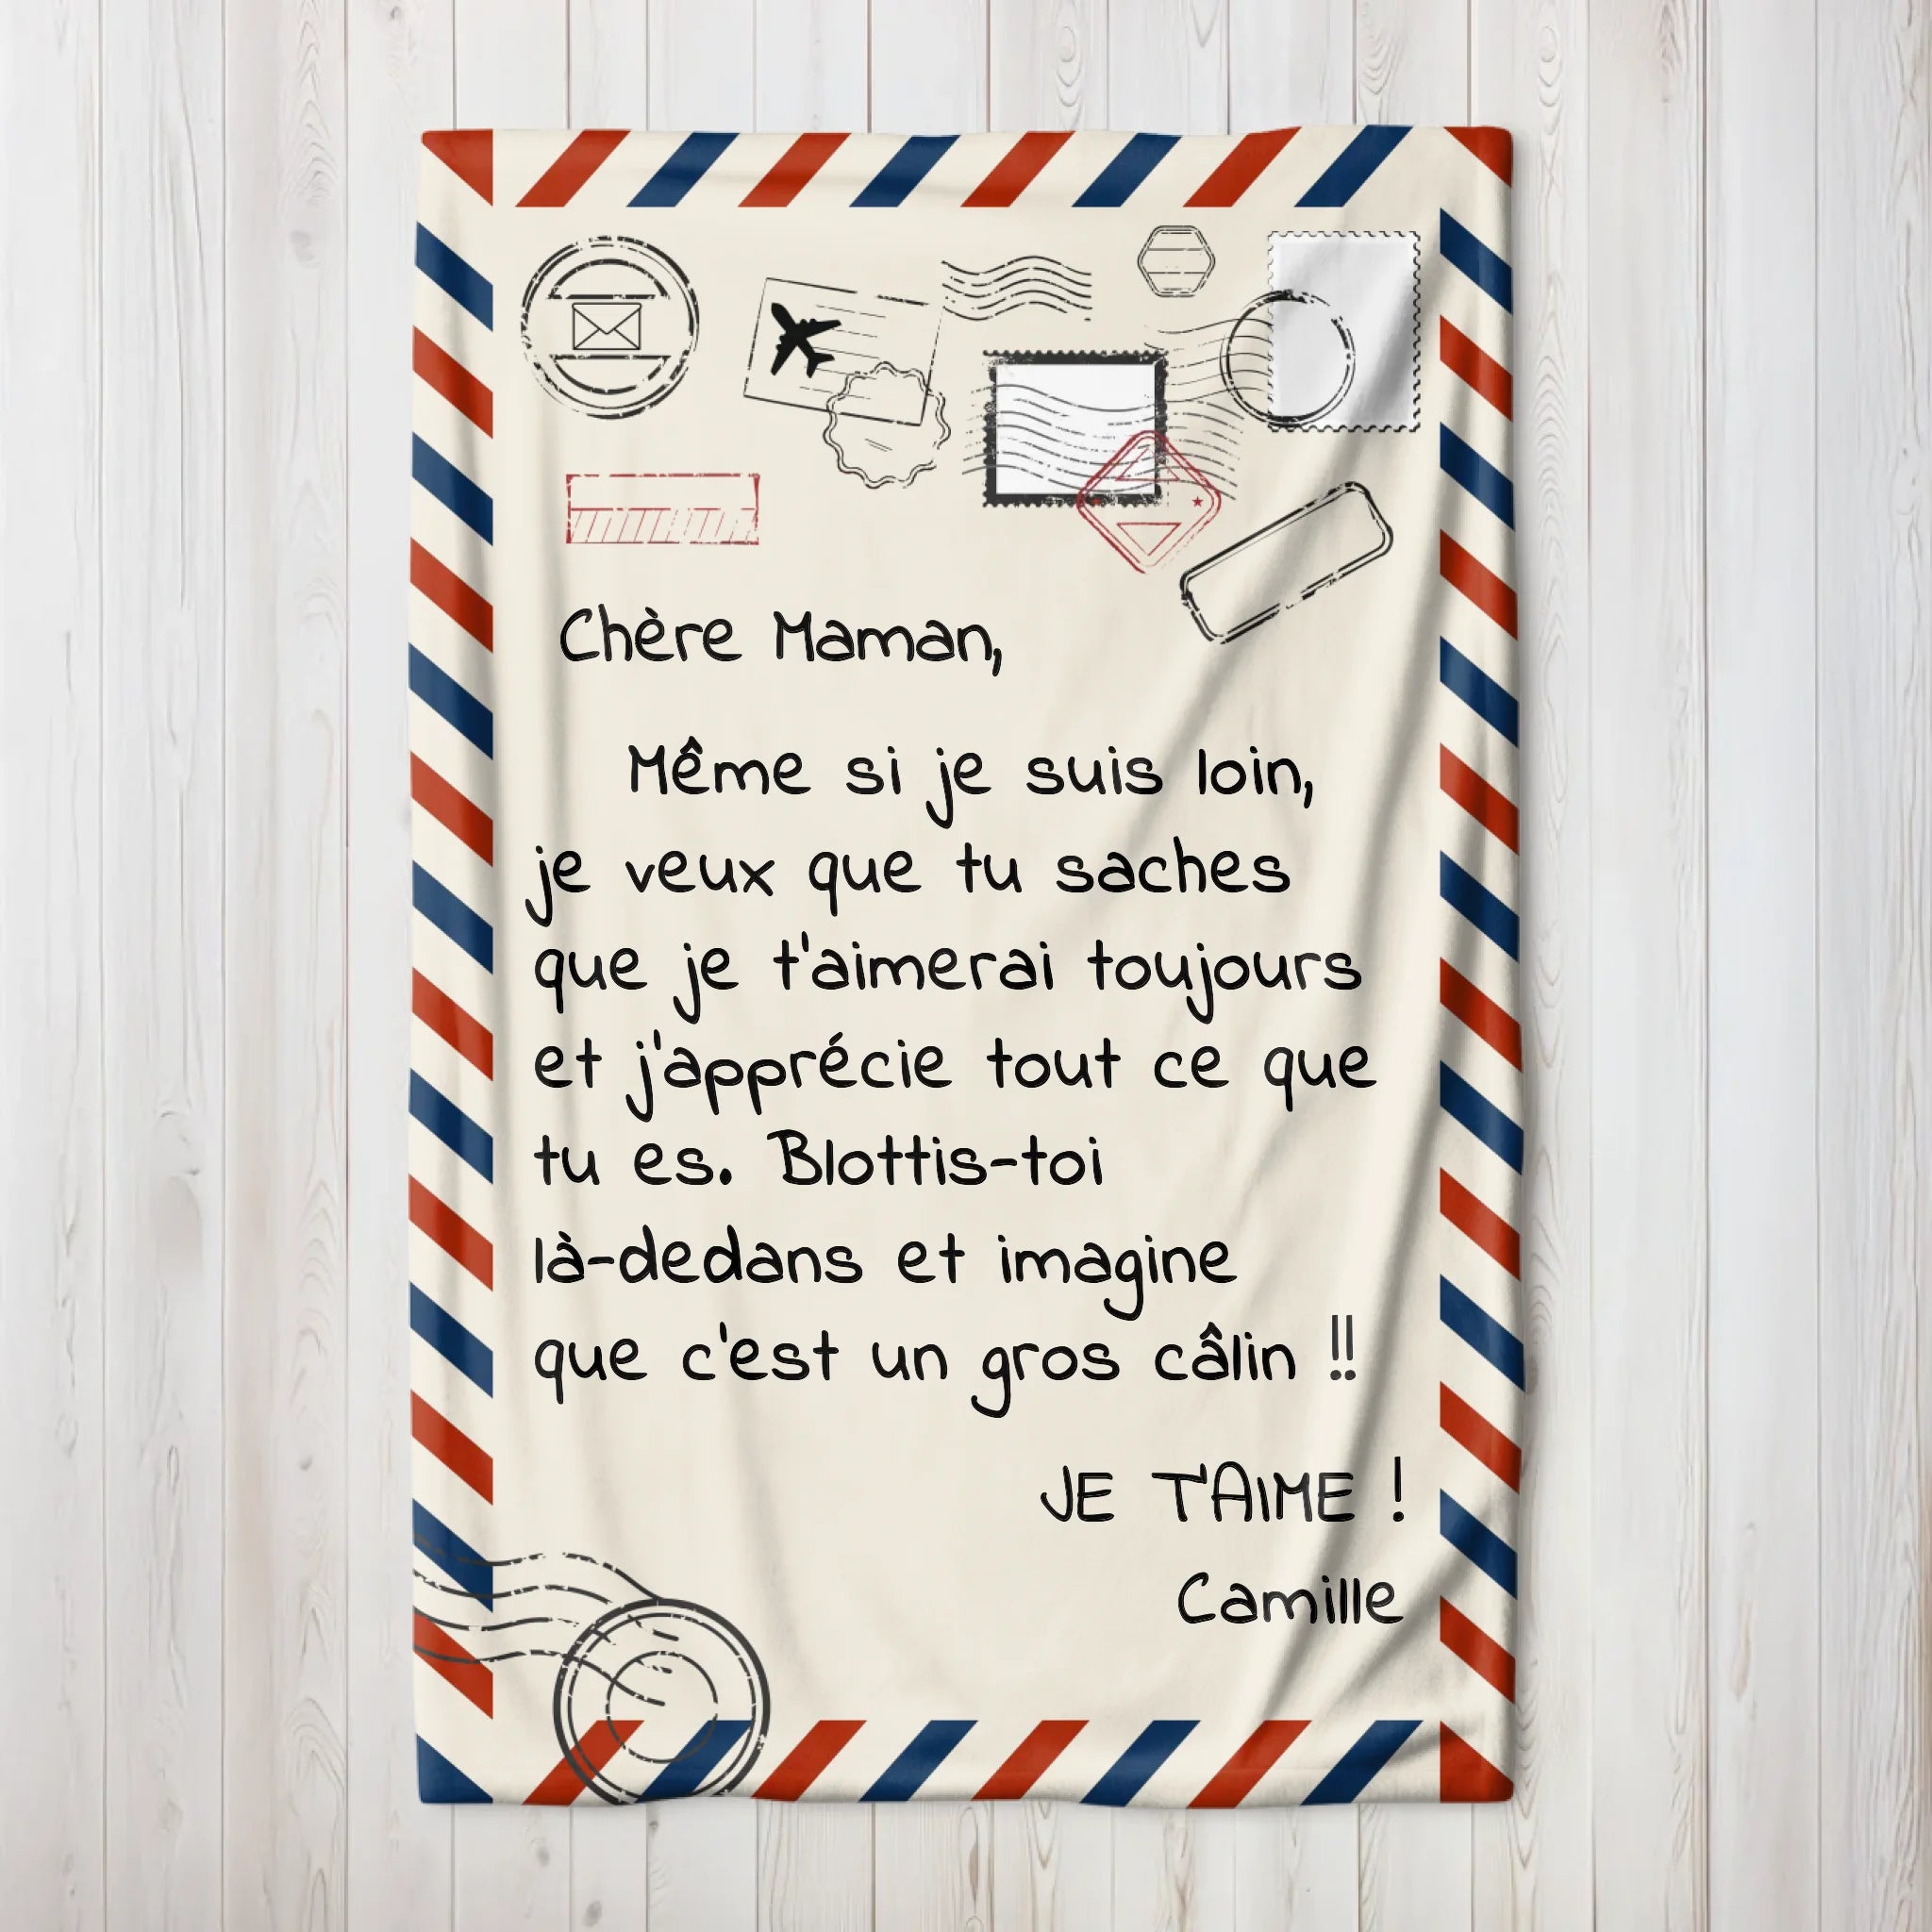 Chère Maman,
Même si je suis loin,
je veux que tu saches
que je t'aimerai toujours
et j'apprécie tout ce que
tu es. Blottis-toi
là-dedans et imagine
que c'est un gros câlin !!
JE T'AIME !
Camille